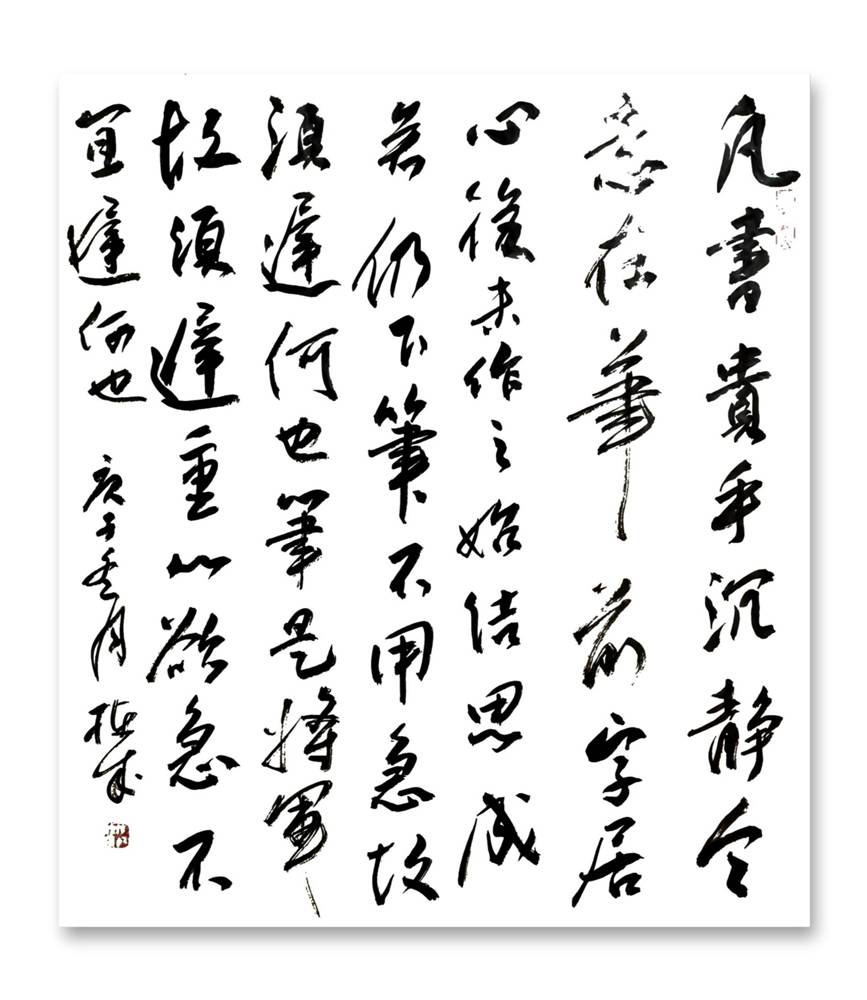 凡書貴乎沉静令
意在筆前字居
心後未作之始结思成
矣仍下筆不用急故
須遲何也筆是將軍
故須遲重心欲急不
宜遲何也 庚子月